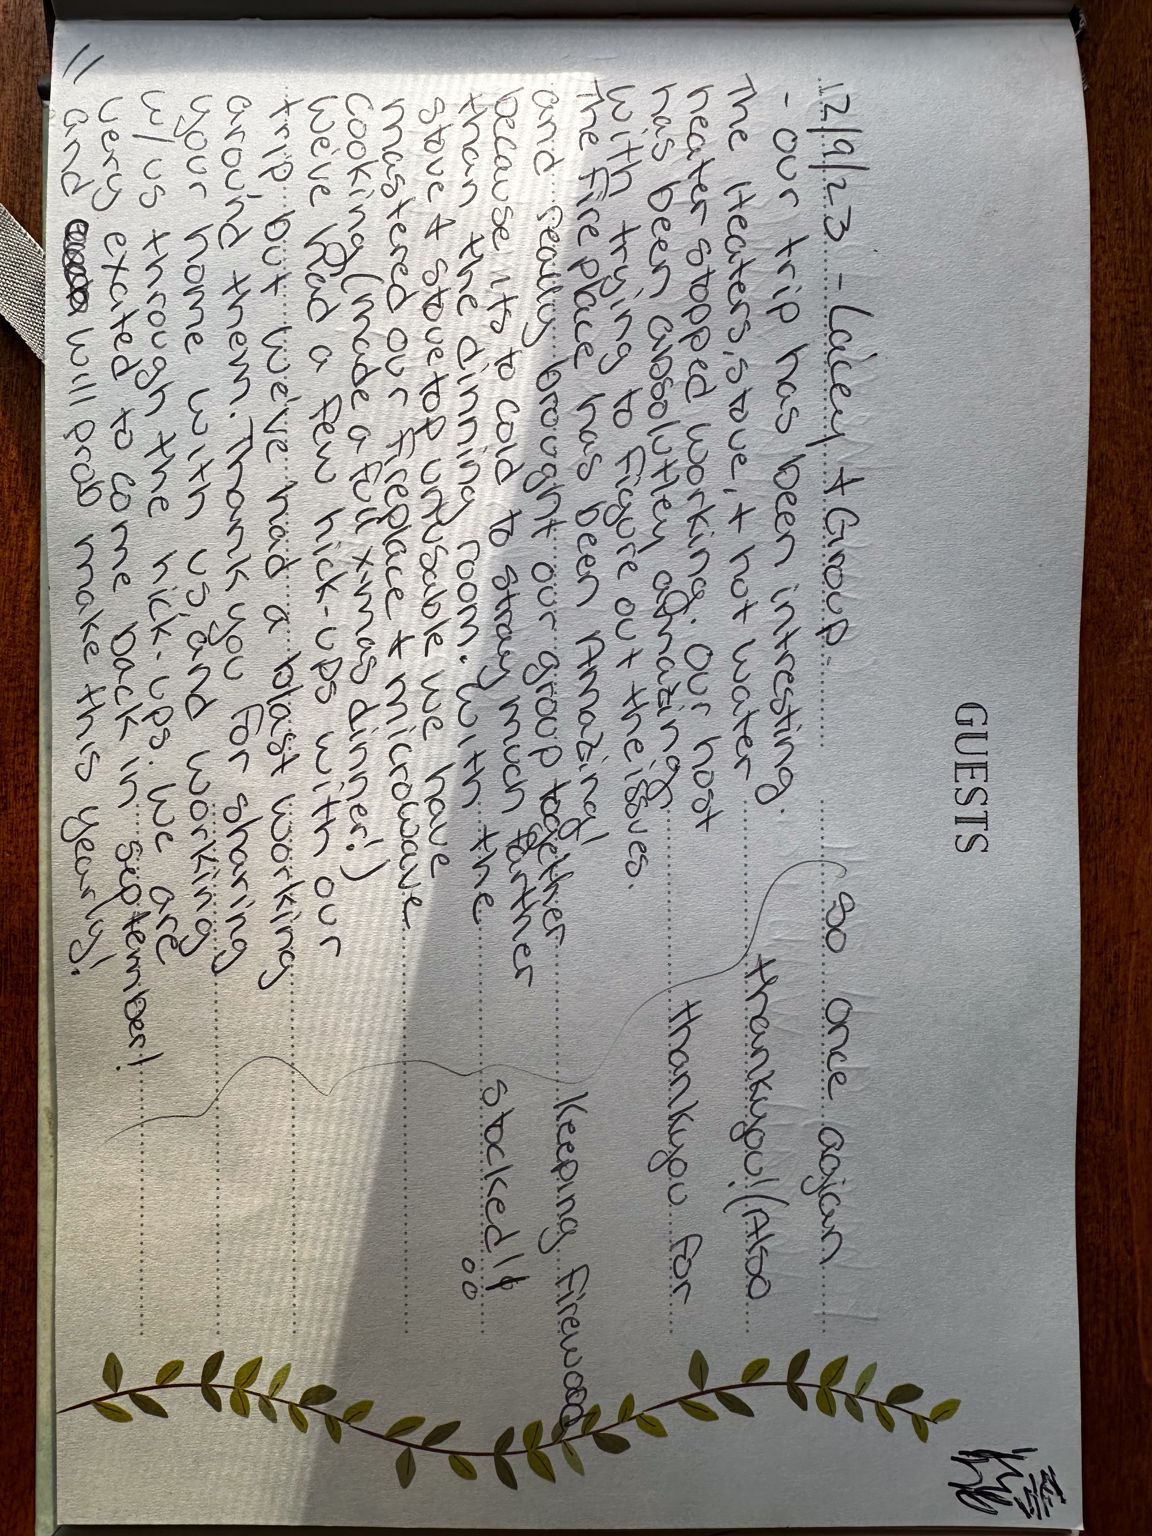 GUESTS
12/9/23 - Lacey + Group.
- our trip has been intresting.
The Heaters, stove, + hot water
heater stopped working. Our host
has been absolutley amazing
with trying to figure out the issues.
The fireplace has been Amazing!
and really brought our group together
because its to cold to stray much farther
than the dinning room. With the
stove + stovetop unusable we have
mastered our fireplace + microwave
cooking (made a full xmas dinner!)
We've had a few hick-ups with our
trip but we've had a blast working
around them. Thank you for sharing
your home with us, and working
w/ us through the hick-ups. We are
very exated to come back in september!
and will prob make this yearly!
so once agian
thankyou! (Also
thankyou for
Keeping firewood
stocked!!